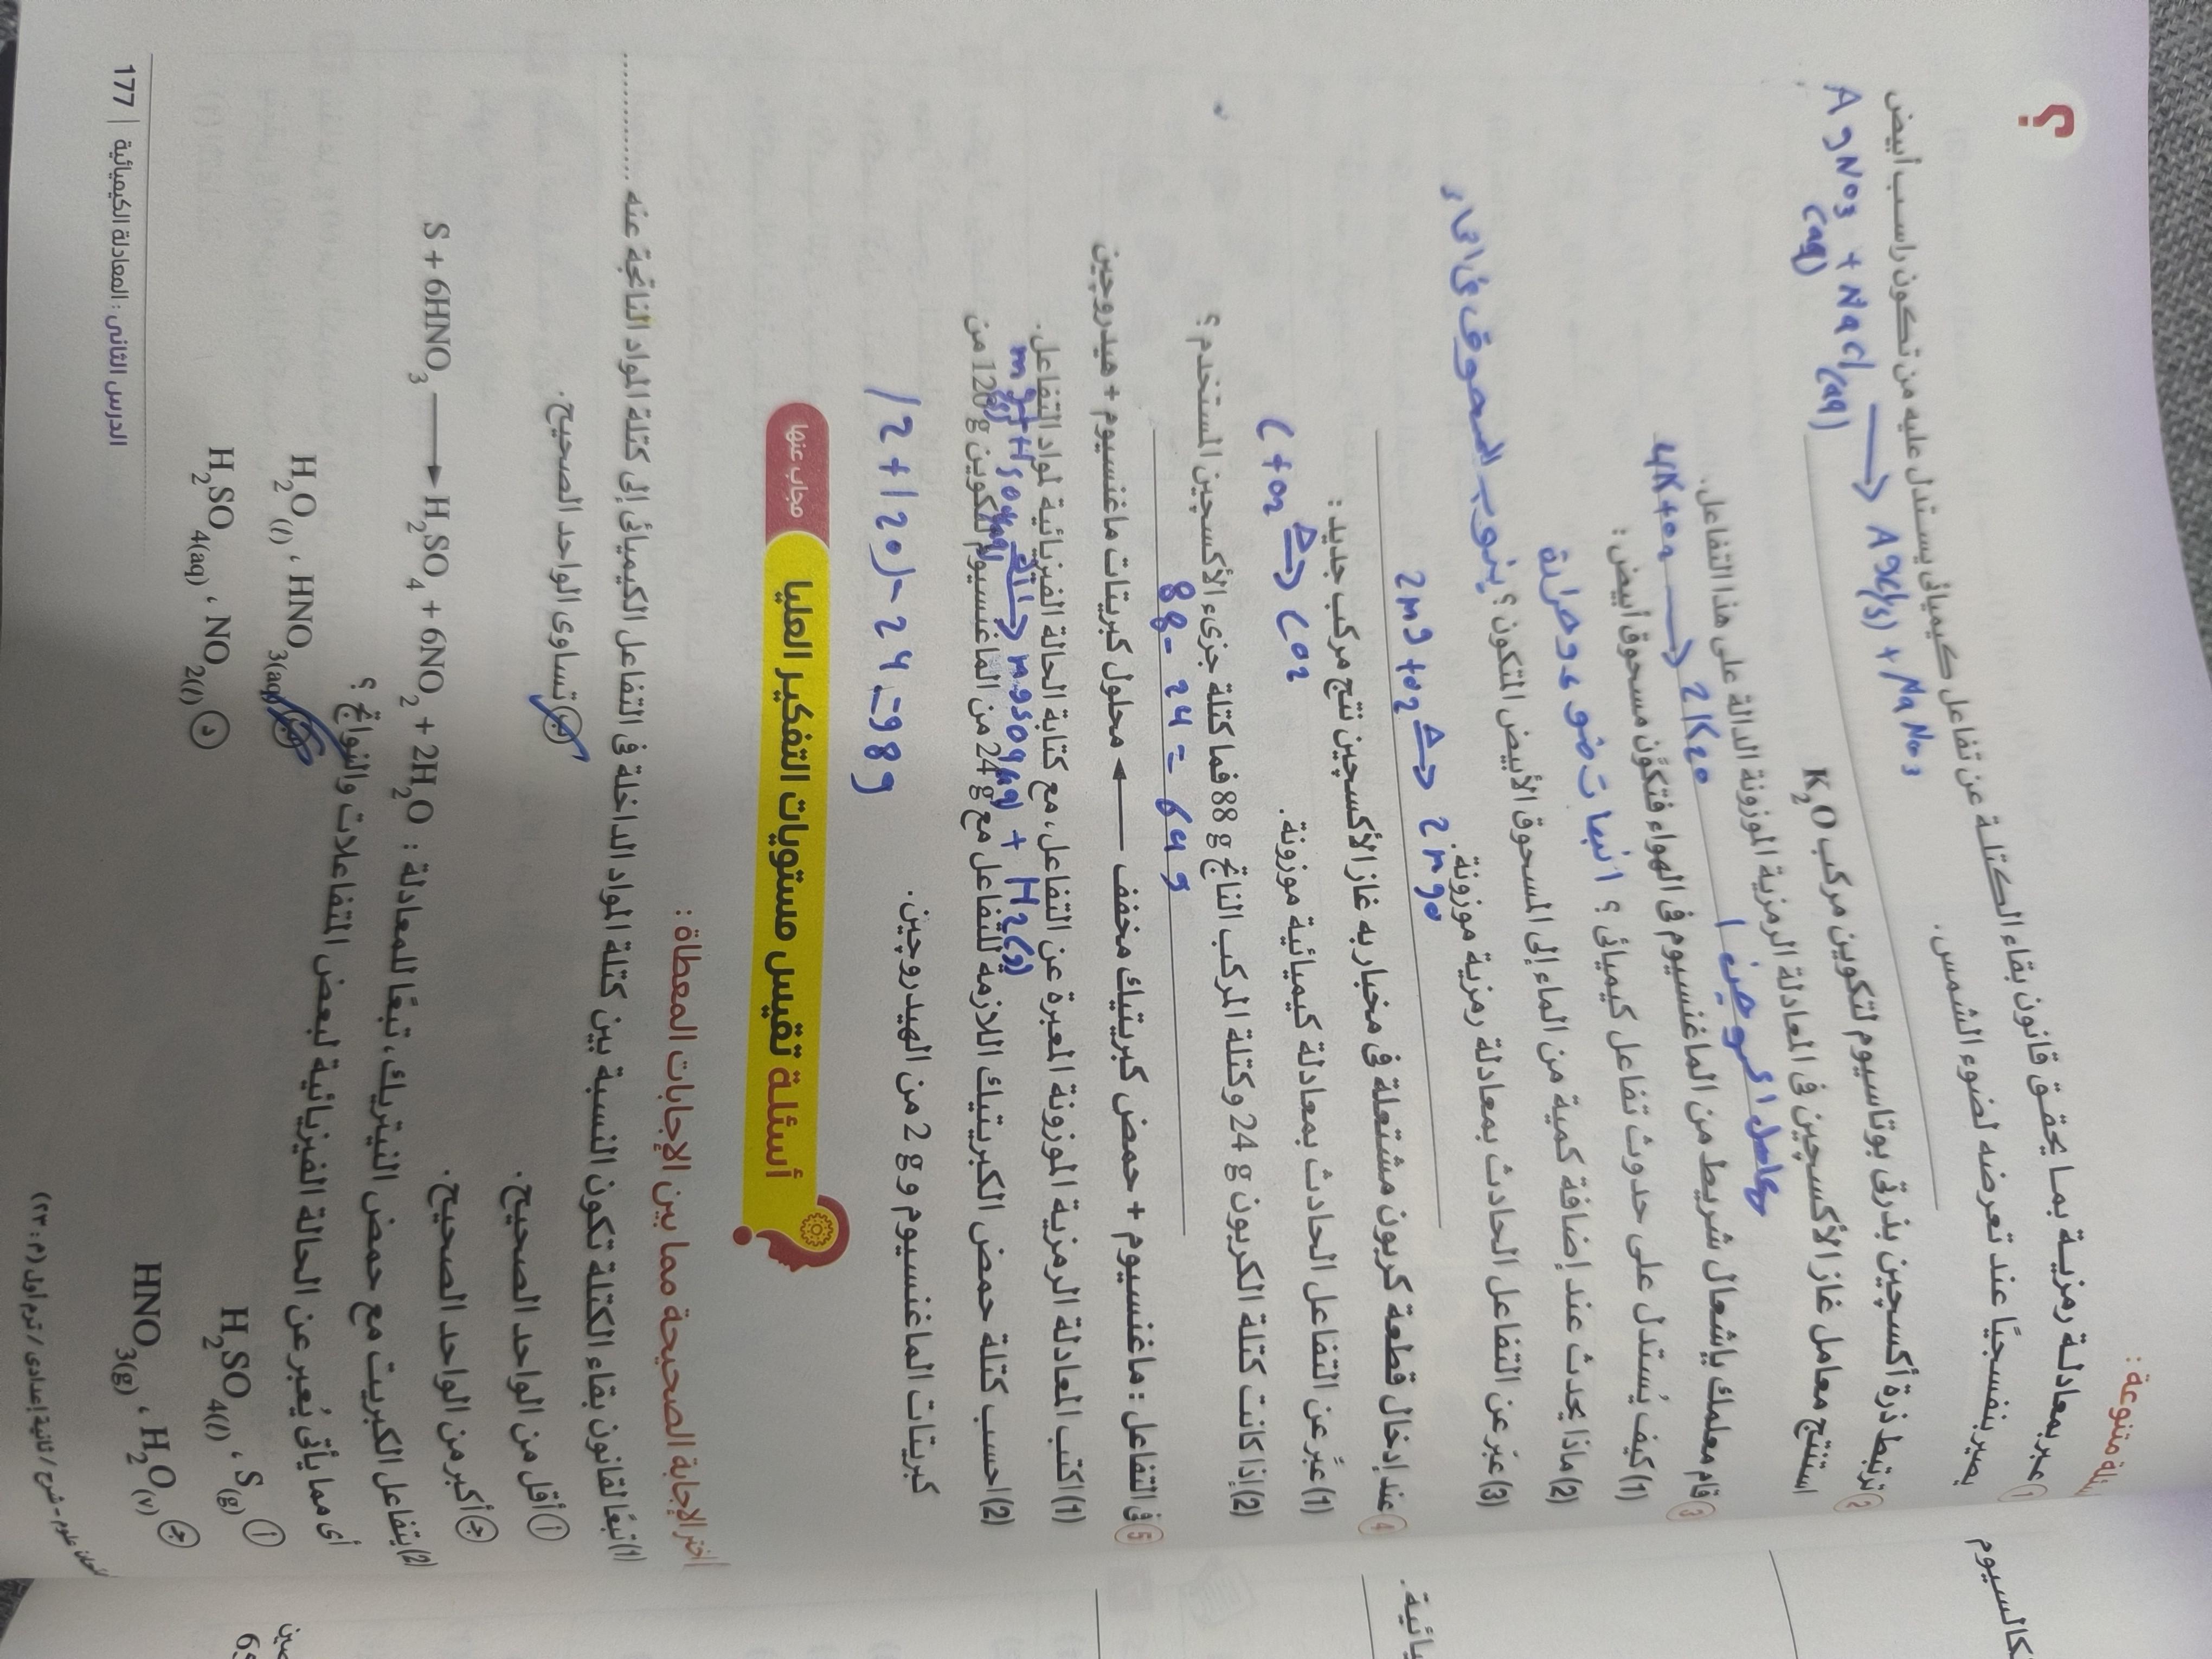 ؟
أسئلة متنوعة :
① عبر بمعادلة رمزية بما يحقق قانون بقاء الكتلة عن تفاعل كيميائى يستدل عليه من تكون راسب أبيض
يصير بنفسجيًا عند تعرضه لضوء الشمس.
AgNO3(aq) + NaCl(aq) → AgCl(s) + NaNO3
② ترتبط ذرة أكسچين بذرتى بوتاسيوم لتكوين مركب K₂O
استنتج معامل غاز الأكسچين فى المعادلة الرمزية الموزونة الدالة على هذا التفاعل.
4K + O2 → 2K2O
③ قام معلمك بإشعال شريط من الماغنسيوم فى الهواء فتكوَّن مسحوق أبيض :
(1) كيف يُستدل على حدوث تفاعل كيميائى ؟ انبعاث ضوء وحرارة
(2) ماذا يحدث عند إضافة كمية من الماء إلى المسحوق الأبيض المتكون ؟ يذوب المسحوق فى الماء
(3) عبّر عن التفاعل الحادث بمعادلة رمزية موزونة.
2mg + O2 △→ 2mgo
④ عند إدخال قطعة كربون مشتعلة فى مخبار به غاز الأكسچين نتج مركب جديد :
(1) عبِّر عن التفاعل الحادث بمعادلة كيميائية موزونة.
C + O2 △→ CO2
(2) إذا كانت كتلة الكربون 24 g وكتلة المركب الناتج 88 g فما كتلة جزىء الأكسچين المستخدم ؟
88 - 24 = 64 g
⑤ فى التفاعل : ماغنسيوم + حمض كبريتيك مخفف ⟶ محلول كبريتات ماغنسيوم + هيدروچين
(1) اكتب المعادلة الرمزية الموزونة المعبرة عن التفاعل، مع كتابة الحالة الفيزيائية لمواد التفاعل.
(2) احسب كتلة حمض الكبريتيك اللازمة للتفاعل مع 24 g من الماغنسيوم لتكوين 120 g من
كبريتات الماغنسيوم و 2 g من الهيدروچين.
(2+120)-24=98g
أسئلة تقيس مستويات التفكير العليا
مجاب عنها
اختر الإجابة الصحيحة مما بين الإجابات المعطاة :
(1) تبعًا لقانون بقاء الكتلة تكون النسبة بين كتلة المواد الداخلة فى التفاعل الكيميائى إلى كتلة المواد الناتجة عنه ............
أ أقل من الواحد الصحيح.
ب تساوى الواحد الصحيح.
ج أكبر من الواحد الصحيح.
(2) يتفاعل الكبريت مع حمض النيتريك، تبعًا للمعادلة : S + 6HNO₃ ⟶ H₂SO₄ + 6NO₂ + 2H₂O
أى مما يأتى يُعبر عن الحالة الفيزيائية لبعض المتفاعلات والنواتج ؟
أ H₂SO₄(l) ، S(g)
ب H₂O(l) ، HNO₃(aq)
ج HNO₃(g) ، H₂O(v)
د H₂SO₄(aq) ، NO₂(l)
علوم - شرح / ثانية إعدادى / ترم أول (م : ٢٣)
الدرس الثانى : المعادلة الكيميائية | 177
كالسيوم